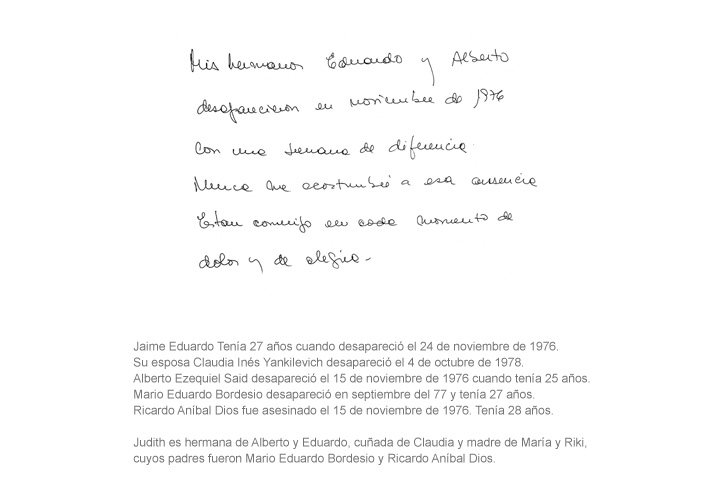 Mis hermanos Eduardo y Alberto
desaparecieron en noviembre de 1976
Con una semana de diferencia.
Nunca me acostumbré a esa ausencia
Estan conmigo en cada momento de
dolor y de alegria -
Jaime Eduardo Tenía 27 años cuando desapareció el 24 de noviembre de 1976.
Su esposa Claudia Inés Yankilevich desapareció el 4 de octubre de 1978.
Alberto Ezequiel Said desapareció el 15 de noviembre de 1976 cuando tenía 25 años.
Mario Eduardo Bordesio desapareció en septiembre del 77 y tenía 27 años.
Ricardo Aníbal Dios fue asesinado el 15 de noviembre de 1976. Tenía 28 años.
Judith es hermana de Alberto y Eduardo, cuñada de Claudia y madre de María y Riki,
cuyos padres fueron Mario Eduardo Bordesio y Ricardo Aníbal Dios.